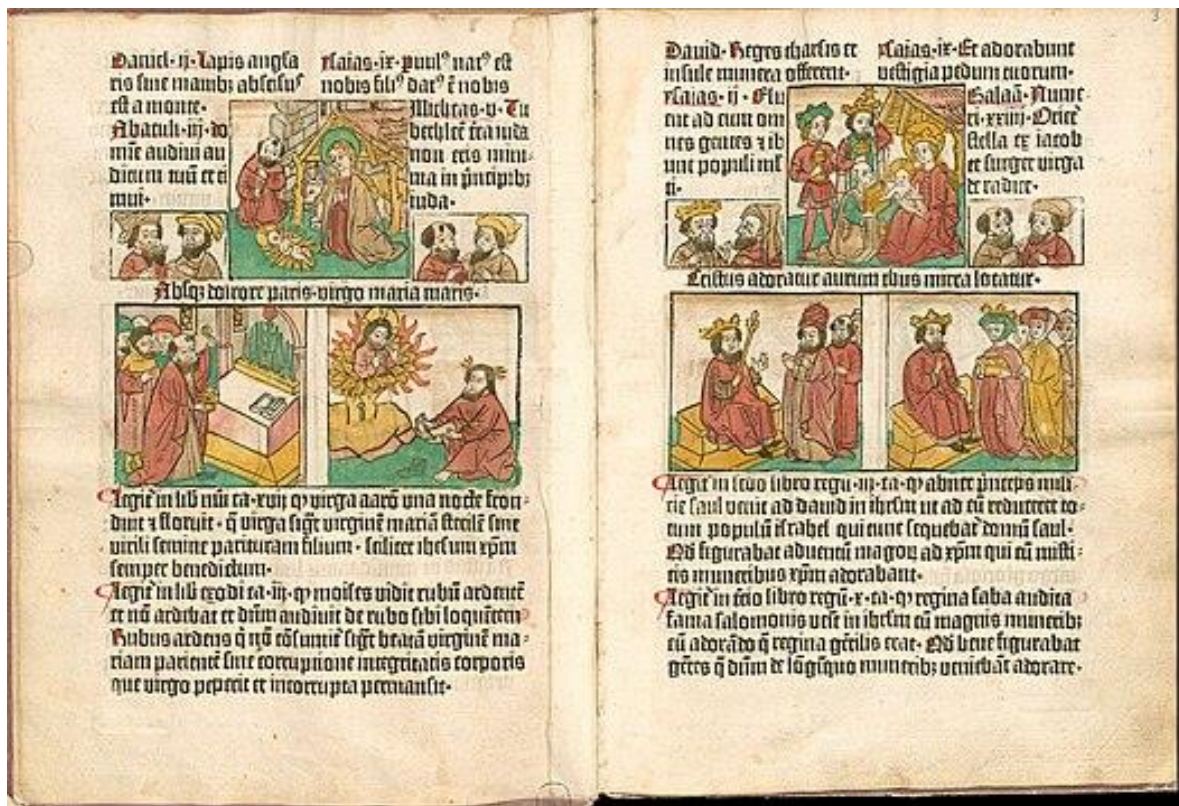 Daniel · ij · Lapis angula
ris sine manibꝫ abscisus
est a monte ·
Abacuk · iij · do
mīe audiui au
ditum tuū et ti
mui ·
Ysaias · ix · puulꝰ natꝰ est
nobis filiꝰ datꝰ ē nobis
Micheas · v · Tu
bethleē t̄ra iuda
non eris mini-
ma in p̄ncipibꝫ
iuda ·
Absqꝫ dolore paris · virgo maria maris ·
Legit̄ in lib nūi ca · xvij · ꝙ virga aarō una nocte fron
duit ⁊ floruit · q̄ virga figᷓt virginē mariā sterilē sine
virili semine parituram filium · scilicet ihesum xp̄m
semper benedictum ·
Legit̄ in lib exodi ca · iij · ꝙ moises vidit rubū ardentē
et nō ardebat et dn̄m audiuit de rubo sibi loquētem
Rubus ardens q̄ nō cōsumit᷑ figᷓt beatā virginē ma-
riam parientē sine corruptione integritatis corporis
que virgo peperit et incorrupta permansit ·
3
Dauid · Reges tharsis et
insule munera offerent ·
Ysaias · ij · Flu
ent ad eum om
nes gentes ⁊ ib
unt populi ml
ti ·
Ysaias · ix · Et adorabunt
vestigia pedum tuorum ·
Balaā · Nume-
ri · xxiiij · Oriet᷑
stella ex iacob
et surget virga
de radice ·
Cristus adoratur aurum thus mirra locatur ·
Legit̄ in scdo libro regū · iij · ca · ꝙ abner p̄nceps mili-
cie saul venit ad dauid in ihrlm ut ad eū reduceret to-
tum populū israhel qui tunc sequebat᷑ domū saul ·
Qd̄ figurabat aduentū magoꝝ ad xp̄m qui eū misti-
cis muneribus xp̄m adorabant ·
Legit̄ in t̄cio libro regū · x · ca · ꝙ regina saba audita
fama salomonis venit in ihrlm cū magnis muneribꝫ
eū adorādo q̄ regina gētilis erat · Qd̄ bene figurabat
gētes q̄ dn̄m de lōginquo muneribꝫ veniebāt adorare ·